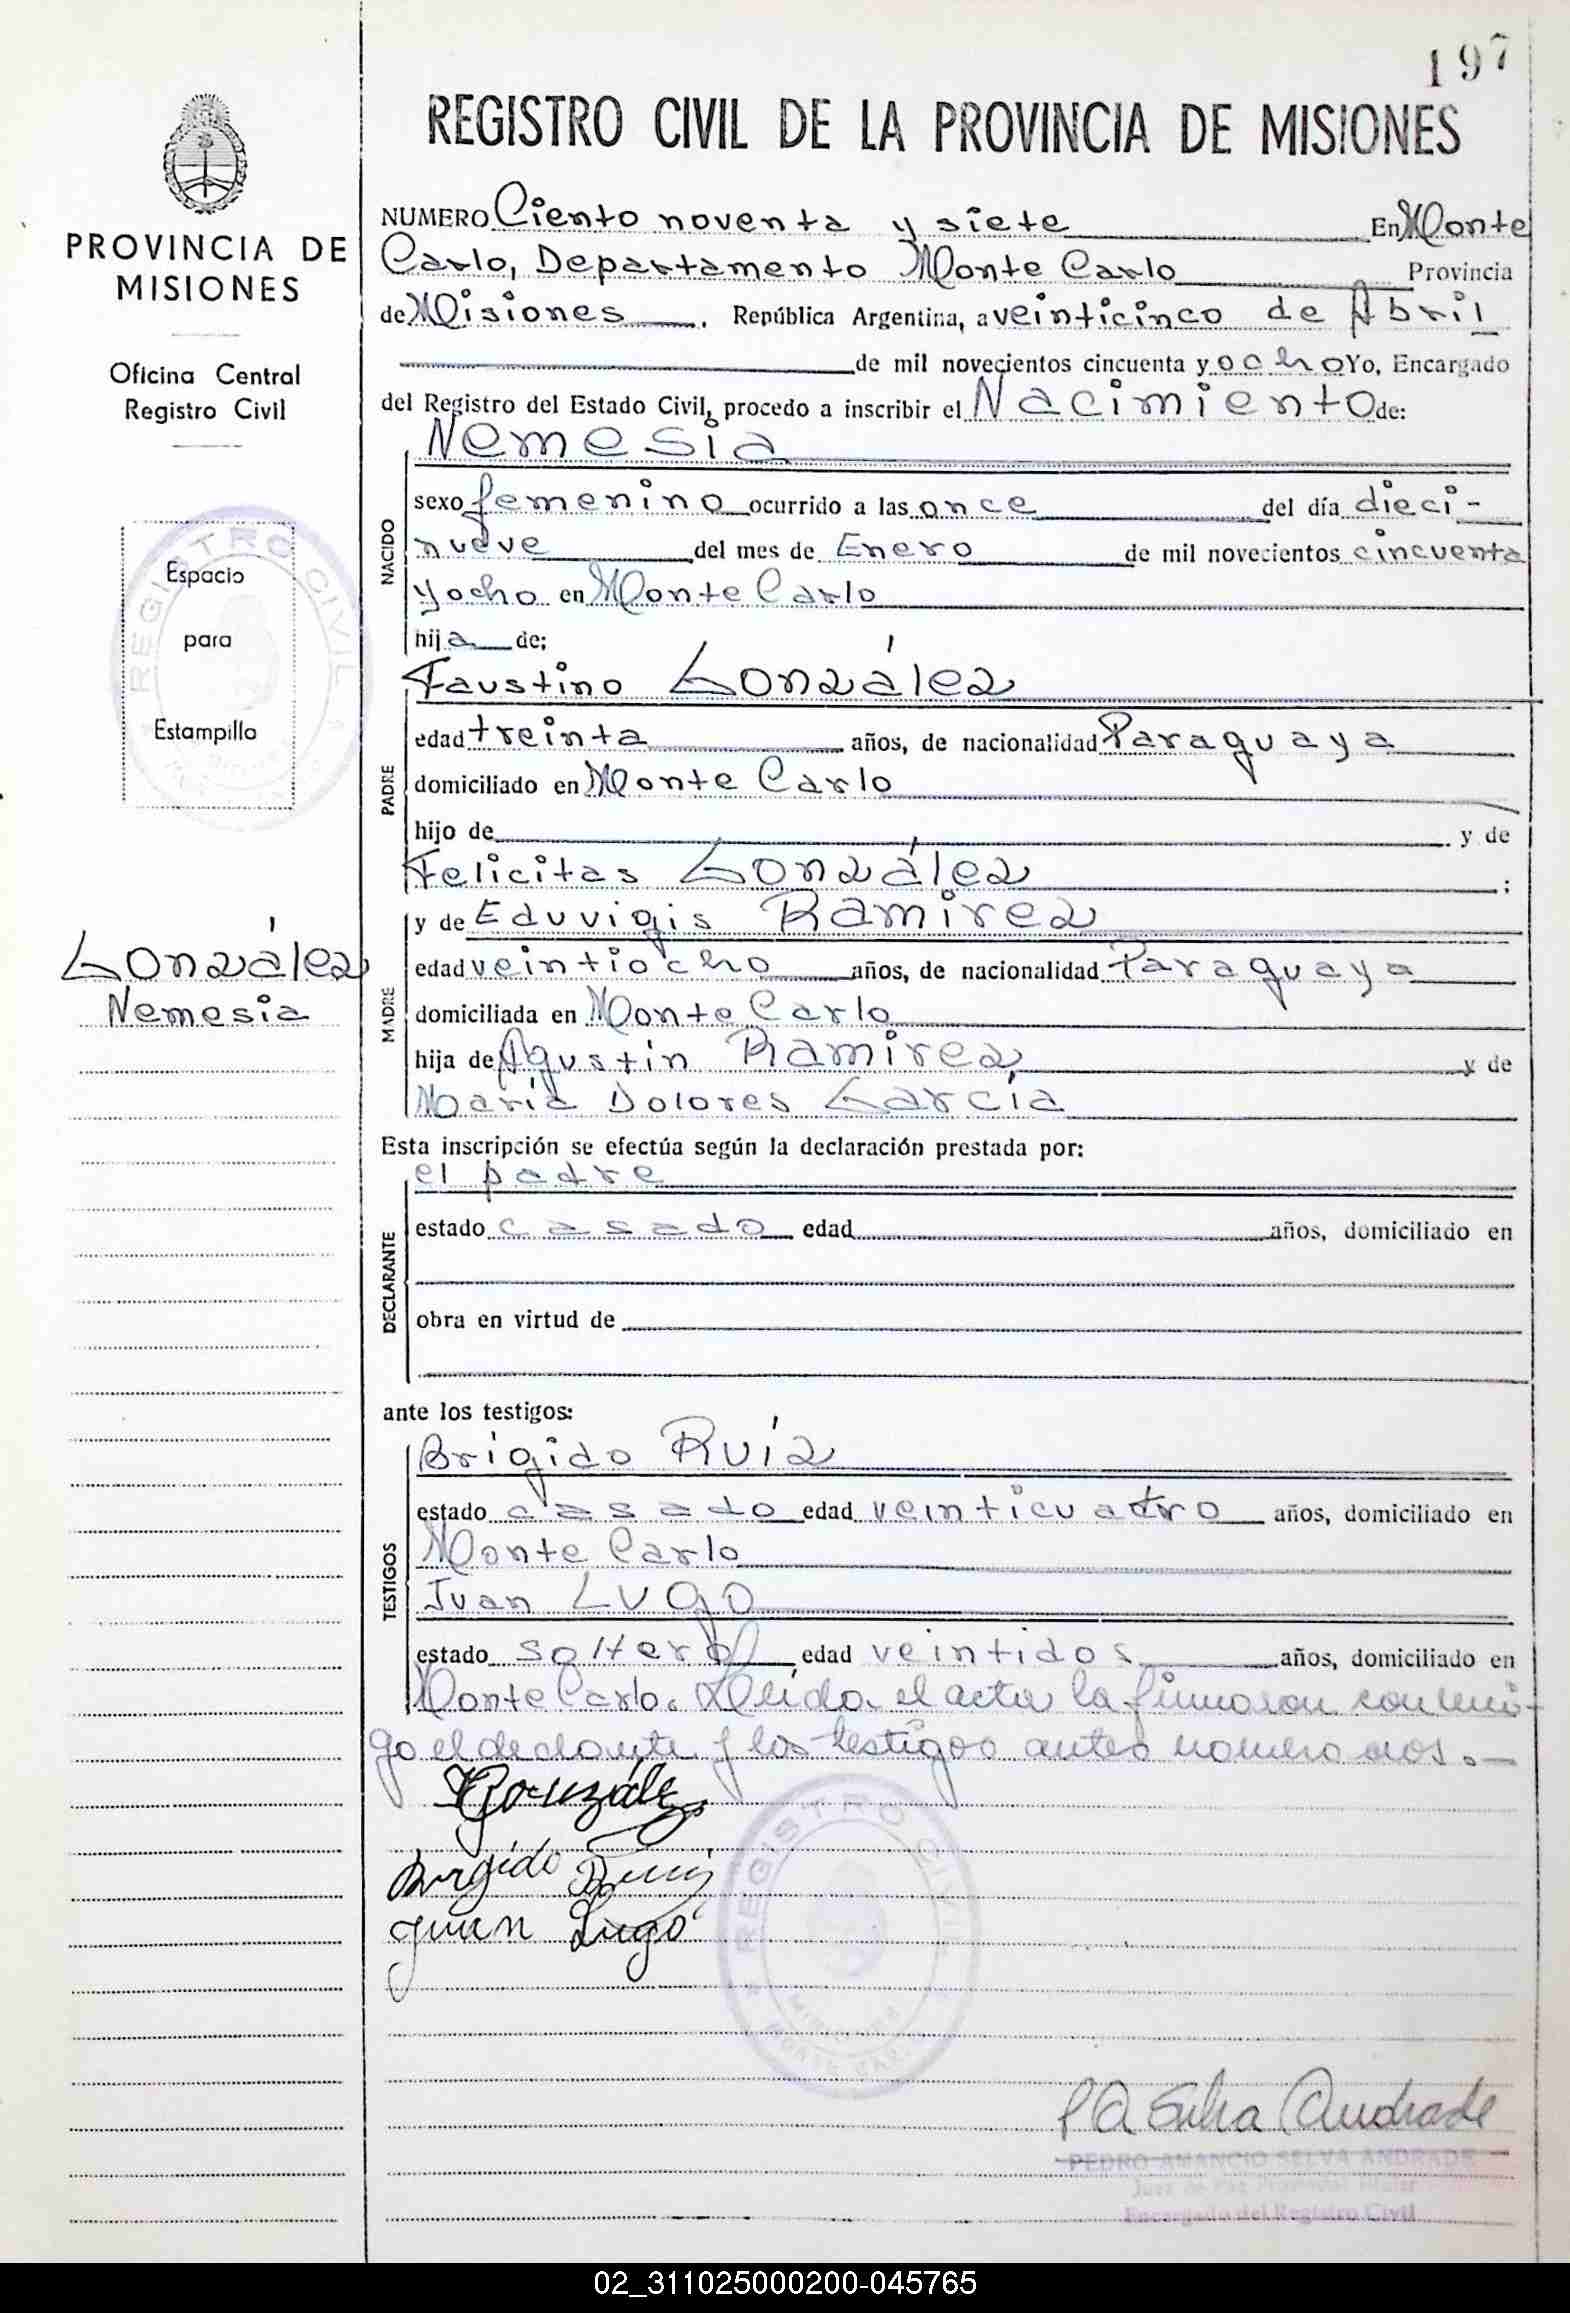 197
REGISTRO CIVIL DE LA PROVINCIA DE MISIONES
PROVINCIA DE
MISIONES
Oficina Central
Registro Civil
Espacio
para
Estampilla
González
Nemesia
NUMERO Ciento noventa y siete En Monte
Carlo, Departamento Monte Carlo Provincia
de Misiones. República Argentina, a veinticinco de Abril
de mil novecientos cincuenta y ocho Yo, Encargado
del Registro del Estado Civil, procedo a inscribir el Nacimiento de:
NACIDO
Nemesia
sexo femenino ocurrido a las once del día dieci-
nueve del mes de Enero de mil novecientos cincuenta
y ocho en Monte Carlo
hija de;
PADRE
Faustino González
edad treinta años, de nacionalidad Paraguaya
domiciliado en Monte Carlo
hijo de y de
Felicitas González ;
MADRE
y de Eduvigis Ramirez
edad veintiocho años, de nacionalidad Paraguaya
domiciliada en Monte Carlo
hija de Agustín Ramirez y de
María Dolores García
Esta inscripción se efectúa según la declaración prestada por:
DECLARANTE
el padre
estado casado edad años, domiciliado en
obra en virtud de
ante los testigos:
TESTIGOS
Brígido Ruíz
estado casado edad veinticuatro años, domiciliado en
Monte Carlo
Juan Lugo
estado soltero edad veintidos años, domiciliado en
Monte Carlo. Leída el acta la firmaron conmi-
go el declarante y los testigos antes nombrados.
González
Brigido Ruiz
Juan Lugo
REGISTRO CIVIL
MISIONES
P A Selva Andrade
PEDRO AMANCIO SELVA ANDRADE
Juez de Paz
Encargado del Registro Civil
02_311025000200-045765